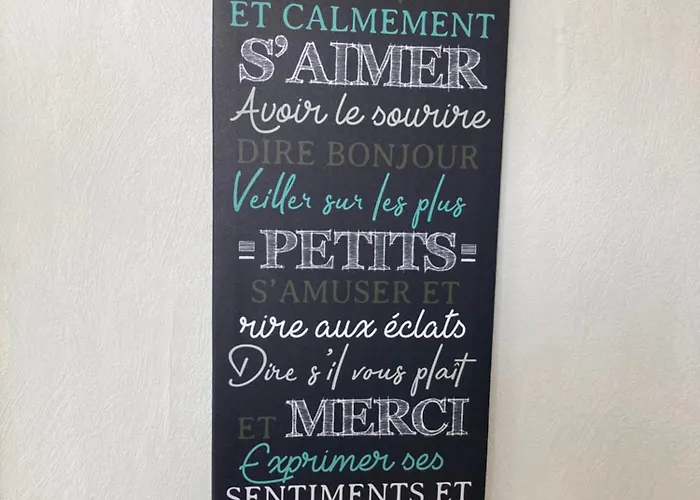 ET CALMEMENT
S'AIMER
Avoir le sourire
DIRE BONJOUR
Veiller sur les plus
PETITS
S'AMUSER ET
rire aux éclats
Dire s'il vous plaît
ET MERCI
Exprimer ses
SENTIMENTS ET